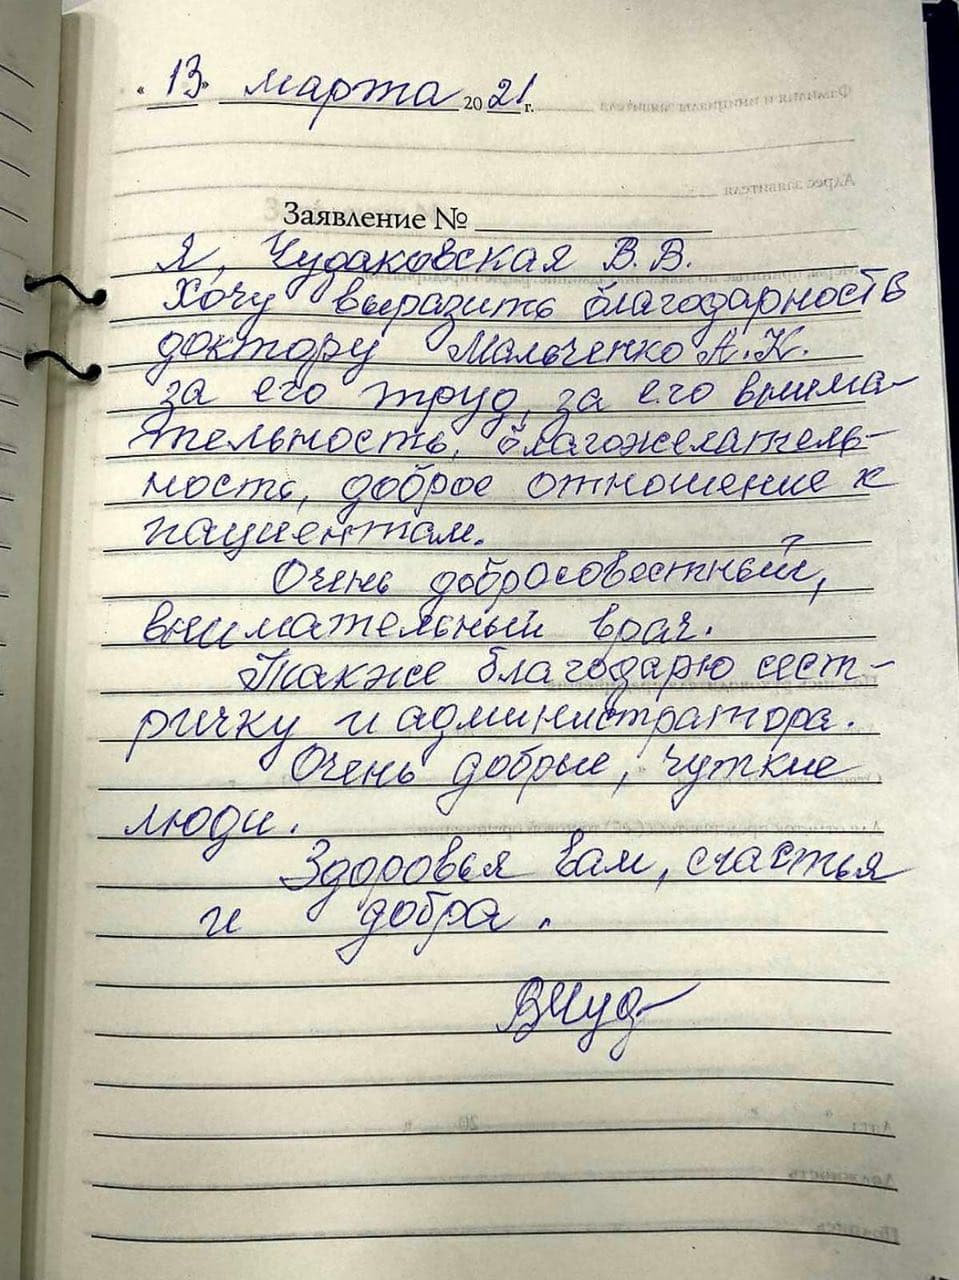 « 13 » марта 20 21 г.
Заявление №
Я, Чудаковская В. В.
Хочу выразить благодарность
доктору Мальченко А. К.
за его труд, за его внима-
тельность, благожелатель-
ность, доброе отношение к
пациентам.
Очень добросовестный,
внимательный врач.
Также благодарю сест-
ричку и администратора.
Очень добрые, чуткие
люди.
Здоровья Вам, счастья
и добра.
ВЧуд
Фамилия и инициалы заявителя
Адрес заявителя